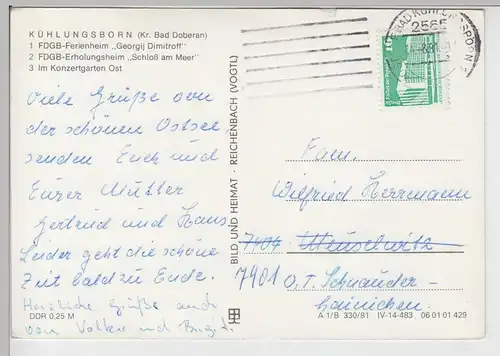 KÜHLUNGSBORN (Kr. Bad Doberan)
1 FDGB-Ferienheim „Georgij Dimitroff"
2 FDGB-Erholungsheim „Schloß am Meer"
3 Im Konzertgarten Ost
Viele Grüße von
der schönen Ostsee
senden Euch und
Eurer Mutter
Gertrud und Hans
Leider geht die schöne
Zeit bald zu Ende.
Herzliche Grüße auch
von Volker und Birgit.
DDR 0,25 M
BILD UND HEIMAT · REICHENBACH (VOGTL)
2565
10
Fam.
Wilfried Herrmann
7404 Meuselwitz
7401 O.T. Schnauder-
hainichen.
A 1/B 330/81 IV-14-483 06 01 01 429